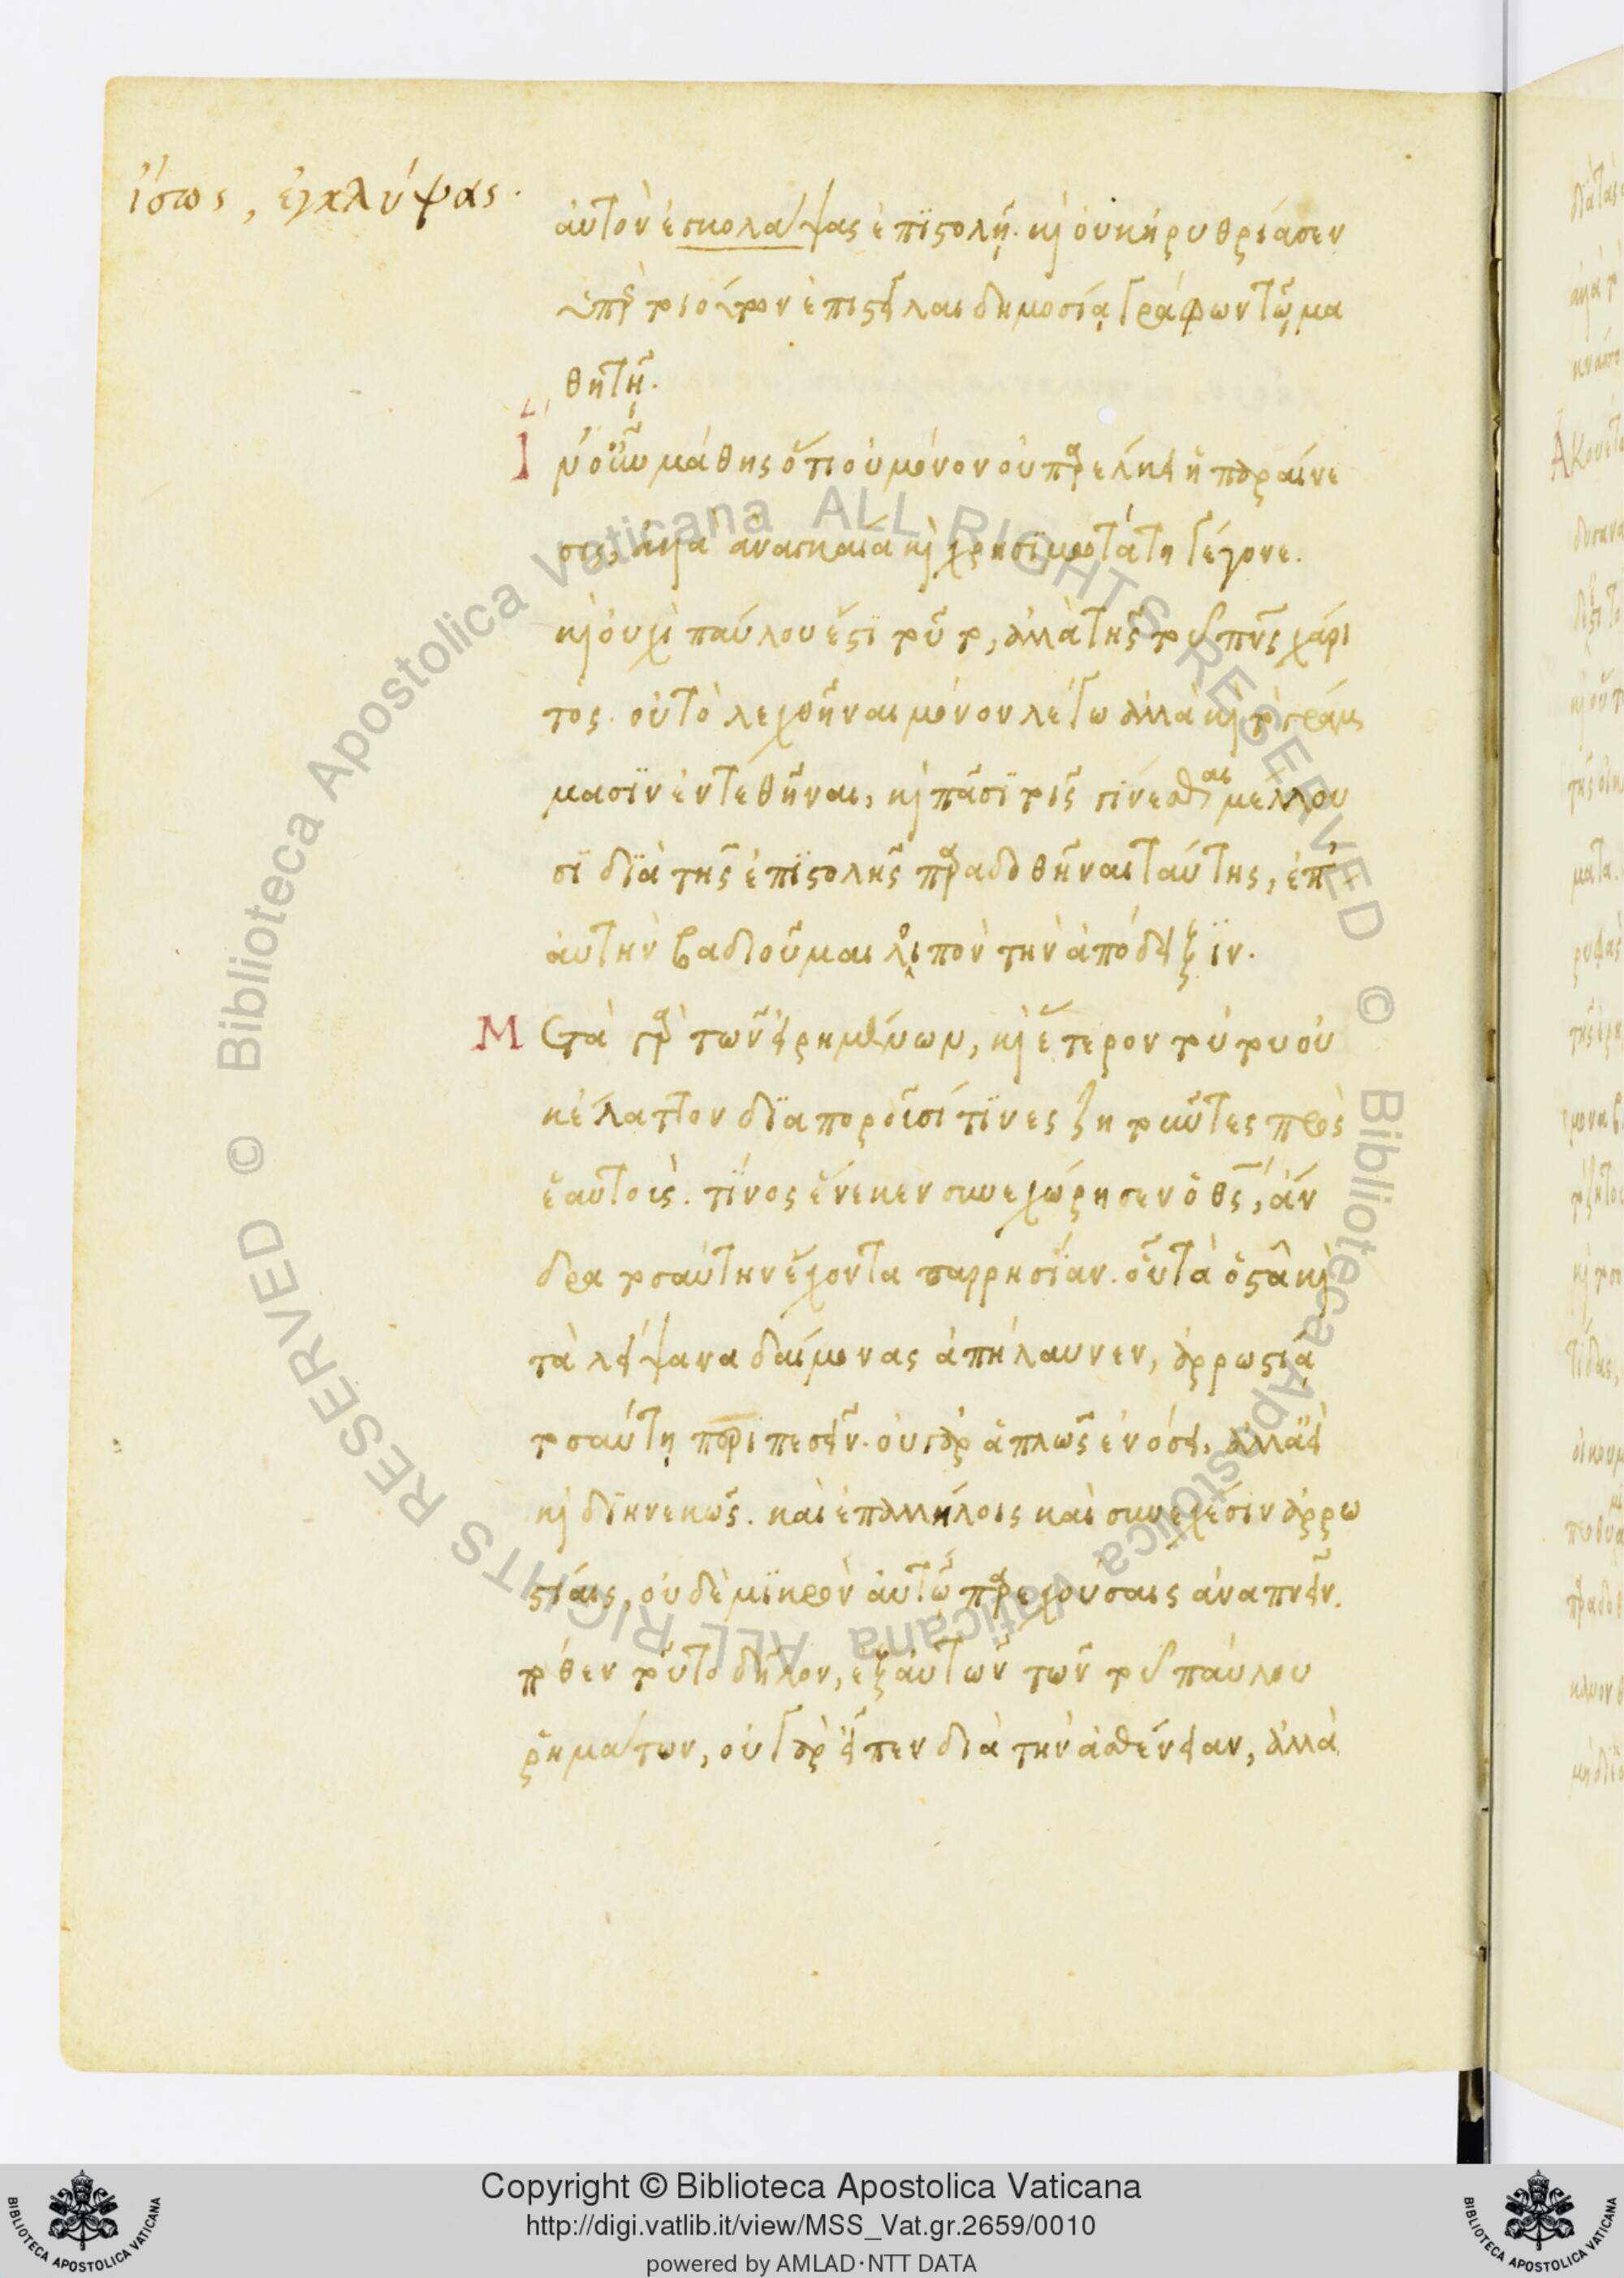 ἴσως, ἐγκλύψας.
αὐτὸν ἐσκολάψας ἐπιστολῇ. καὶ οὐκ ἠρυθρίασεν
ὑπὲρ τοιούτων ἐπιστεῖλαι δημοσίᾳ γράφων τῷ μα
θητῇ.
Ἵν' οὖν μάθης ὅτι οὐ μόνον οὐ παρέλκει ἡ παραίνε
σις, ἀλλὰ ἀναγκαία καὶ χρησιμωτάτη γέγονε.
καὶ οὐχὶ παύλου ἐστὶ τοῦτο, ἀλλὰ τῆς τοῦ πνς χάρι
τος. οὐ τὸ λεχθῆναι μόνον λέγω ἀλλὰ καὶ τὸ γράμ
μασιν ἐντεθῆναι, καὶ πᾶσι τοῖς γίνεσθαι μέλλου
σι διὰ τῆς ἐπιστολῆς παραδοθῆναι ταύτης, ἐπ'
αὐτὴν βαδιοῦμαι λοιπὸν τὴν ἀπόδειξιν.
Μετὰ γὰρ τῶν εἰρημένων, καὶ ἕτερον τούτου οὐ
κ ἔλαττον διαποροῦσί τινες ζητοῦντες πρὸς
ἑαυτοὺς. τίνος ἕνεκεν συνεχώρησεν ὁ θς, ἄν
δρα τοσαύτην ἔχοντα παρρησίαν. οὗ τὰ ὀστᾶ καὶ
τὰ λείψανα δαίμονας ἀπήλαυνεν, ἀρρωστίᾳ
τοσαύτῃ περιπεσεῖν. οὐ γὰρ ἁπλῶς ἐνόσει, ἀλλ' ἀεὶ
καὶ διηνεκῶς. καὶ ἐπαλλήλοις καὶ συνεχέσιν ἀρρω
στίαις, οὐδὲ μικρὸν αὐτῷ παρεχούσαις ἀναπνεῖν.
πόθεν τοῦτο δῆλον, ἐξ αὐτῶν τῶν τοῦ παύλου
ῥημάτων, οὐ γὰρ εἶπεν διὰ τὴν ἀσθένειαν, ἀλλὰ
Copyright © Biblioteca Apostolica Vaticana
http://digi.vatlib.it/view/MSS_Vat.gr.2659/0010
powered by AMLAD·NTT DATA
BIBLIOTECA APOSTOLICA VATICANA
BIBLIOTECA APOSTOLICA VATICANA
© Biblioteca Apostolica Vaticana ALL RIGHTS RESERVED
© Biblioteca Apostolica Vaticana ALL RIGHTS RESERVED